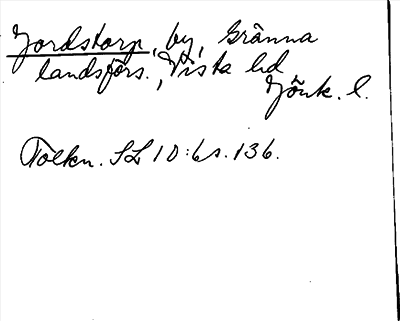 Jordstorp, by, Gränna
landsförs., Vista hd
Jönk. l.
Tolkn. SL 10:6 s. 136.